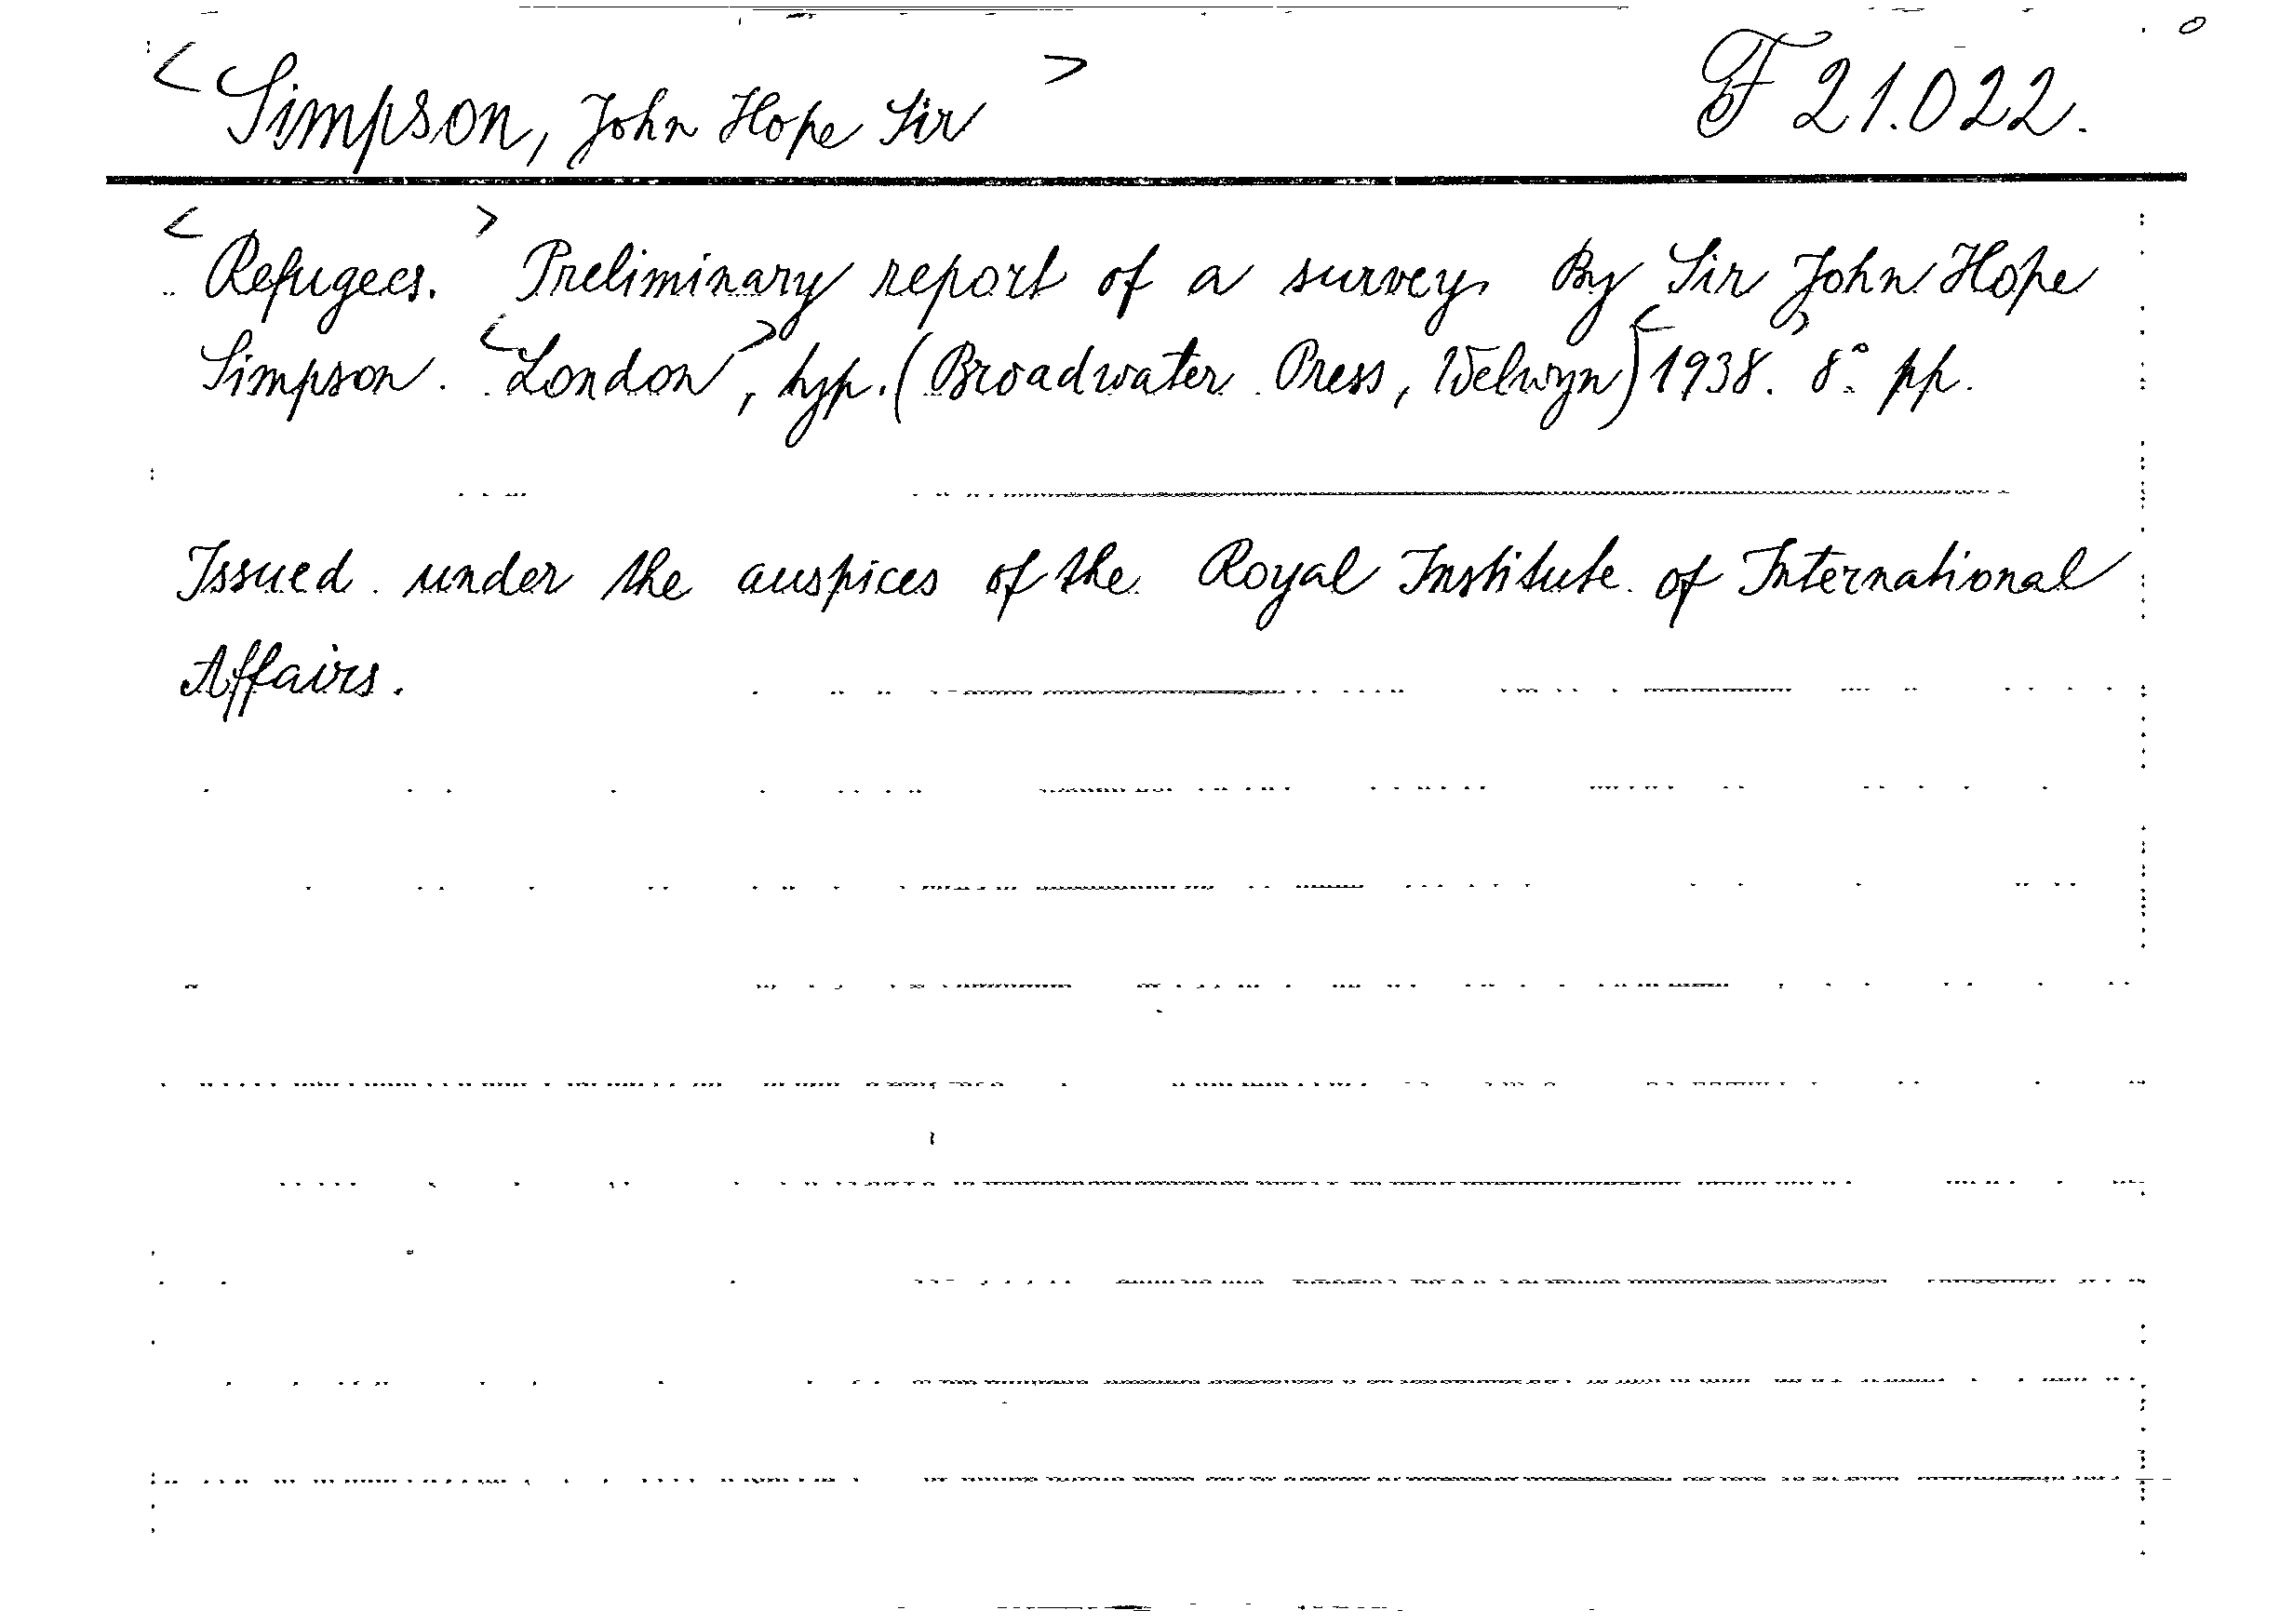 <Simpson, John Hope Sir> F 21.022.
<Refugees.> Preliminary report of a survey. By Sir John Hope
Simpson. <London>, typ. (Broadwater Press, Welwyn) <1938.> 8° pp.
Issued under the auspices of the Royal Institute of International
Affairs.